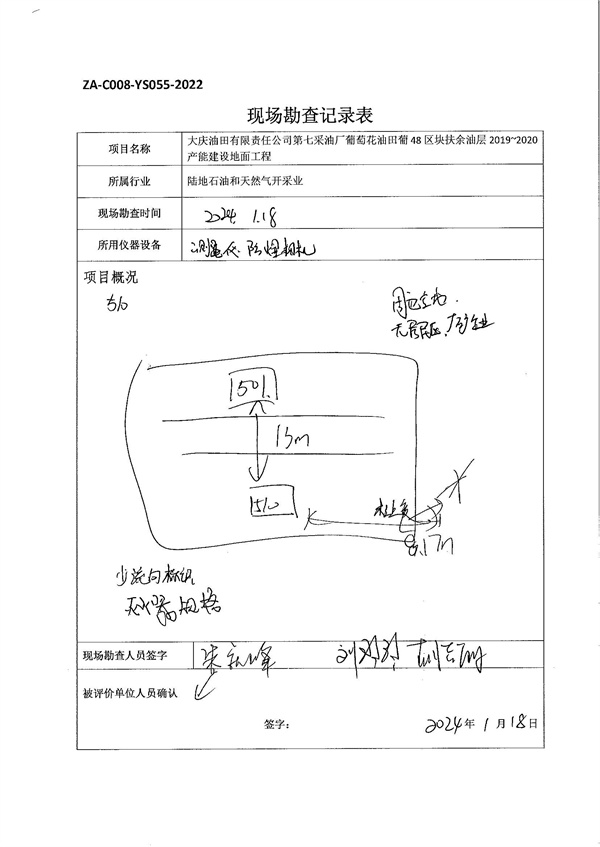 ZA-C008-YS055-2022
现场勘查记录表
项目名称
大庆油田有限责任公司第七采油厂葡萄花油田葡 48 区块扶余油层 2019~2020
产能建设地面工程
所属行业
陆地石油和天然气开采业
现场勘查时间
2024 1.18
所用仪器设备
防爆相机
项目概况
510
周边空地.
无居民区,厂矿企业
501
15m
510
17m
少流向标识
现场勘查人员签字
被评价单位人员确认
签字：
2024年 1 月 18日